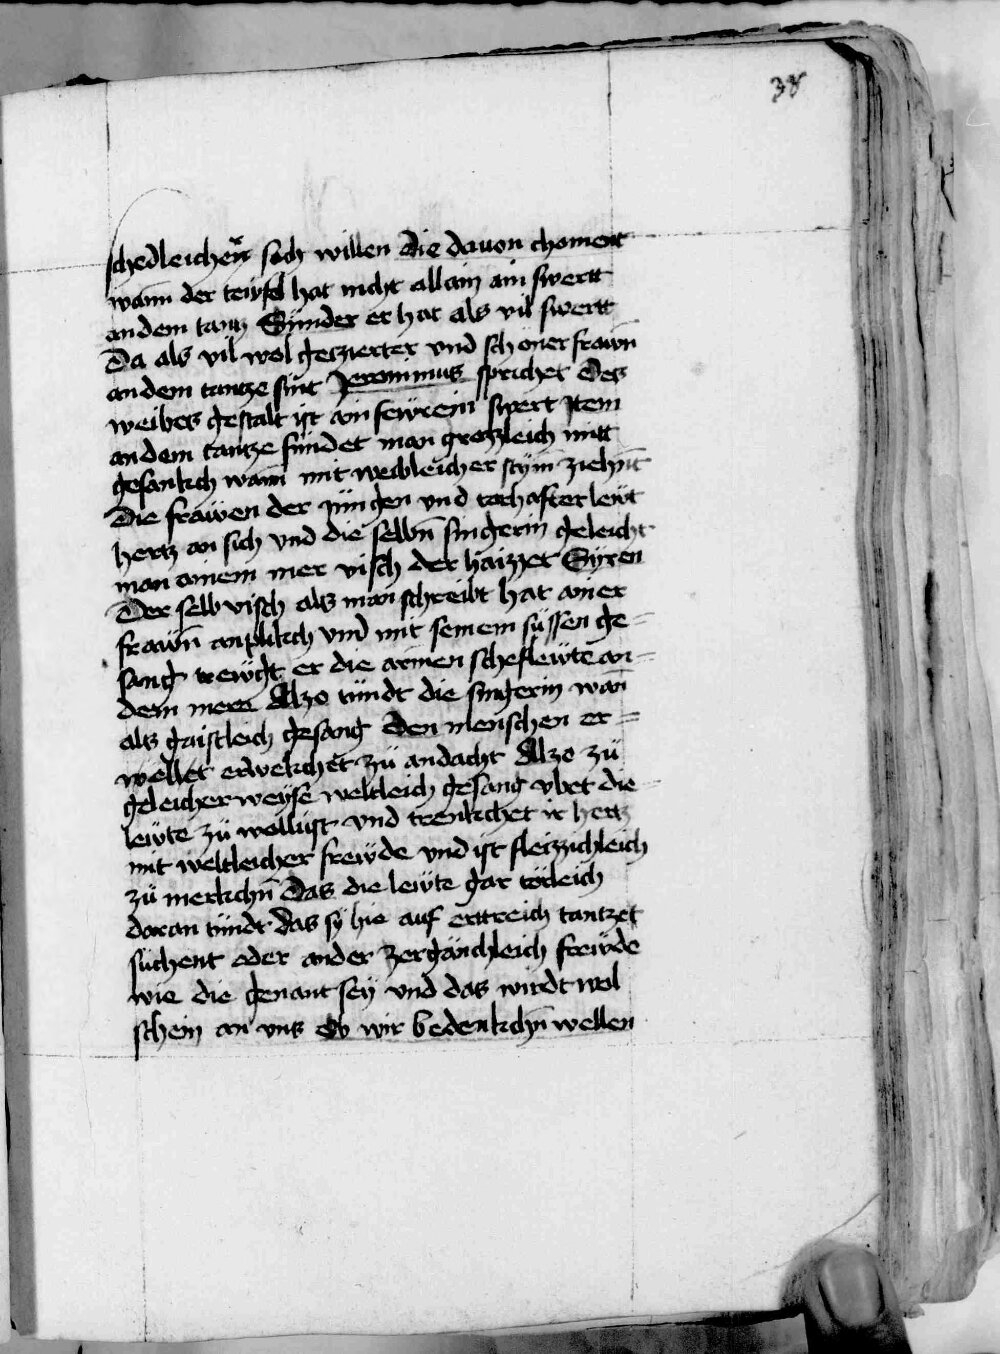 38
schedleichen̄ sach willen die dauon choment
wann̄ der tewfel hat nicht allain ain swertt
an dem tantz Sunder er hat als vil swertt
Da als vil wol geczierter vnd schoner frawn̄
an dem tantze sint Jeronimus sprichet Des
weibes gestalt ist ain fewrein swert Item
an dem tantze findet man grozzleich mitt
gesankch wann̄ mit weibleicher stym̄ ziehn̄t
Die frawen der jungen vnd torhafter lewt
hertz an sich vnd die selbn̄ singerin geleicht
man ainem mer visch der haizzet Syren
Der selb visch als man schreibt hat ainer
frawn̄ anplikch vnd mit seinem süssen ge=
sang trewgt er die armen scheflewte an=
dem mere Alzo tündt die singerin wan̄
als gaistleich gesang Den menschen er=
wellet erwekchet zü andacht Alzo zü
geleicher weyse weltleich gesang vbet die
lewte zü wollust vnd trenkchet ir hertz
mit weltleicher frewde vnd ist fleizzichleich
zü merkchn̄ Das die lewte gar törleich
daran tündt das sy hie auf ertreich tantzet
süchent oder ander zergänchleich frewde
wie die genant sey vnd das wirdt wol
schein an vns Ob wir bedenkchn̄ wellen